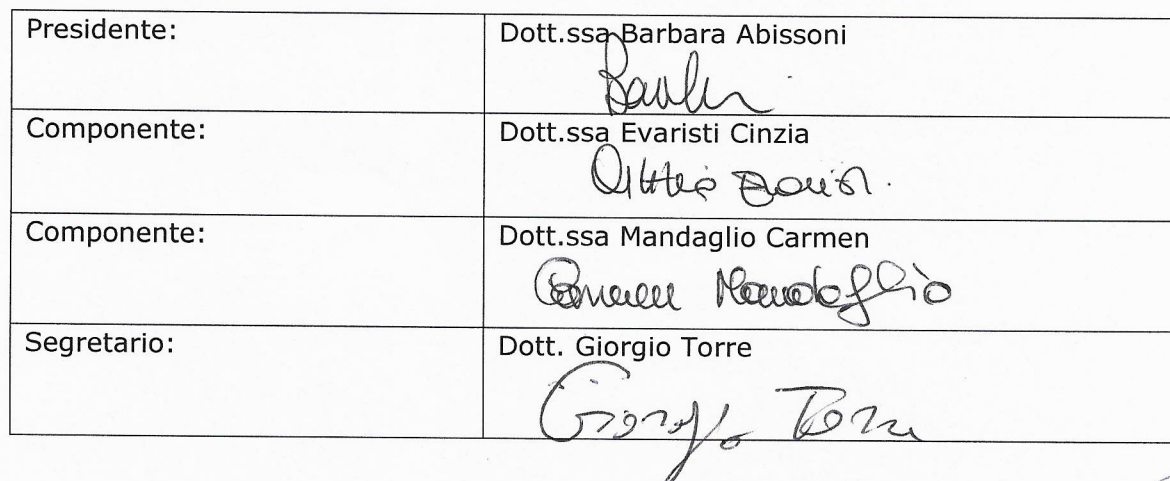 Presidente:
Dott.ssa Barbara Abissoni
Componente:
Dott.ssa Evaristi Cinzia
Componente:
Dott.ssa Mandaglio Carmen
Carmen Mandaglio
Segretario:
Dott. Giorgio Torre
Giorgio Torre